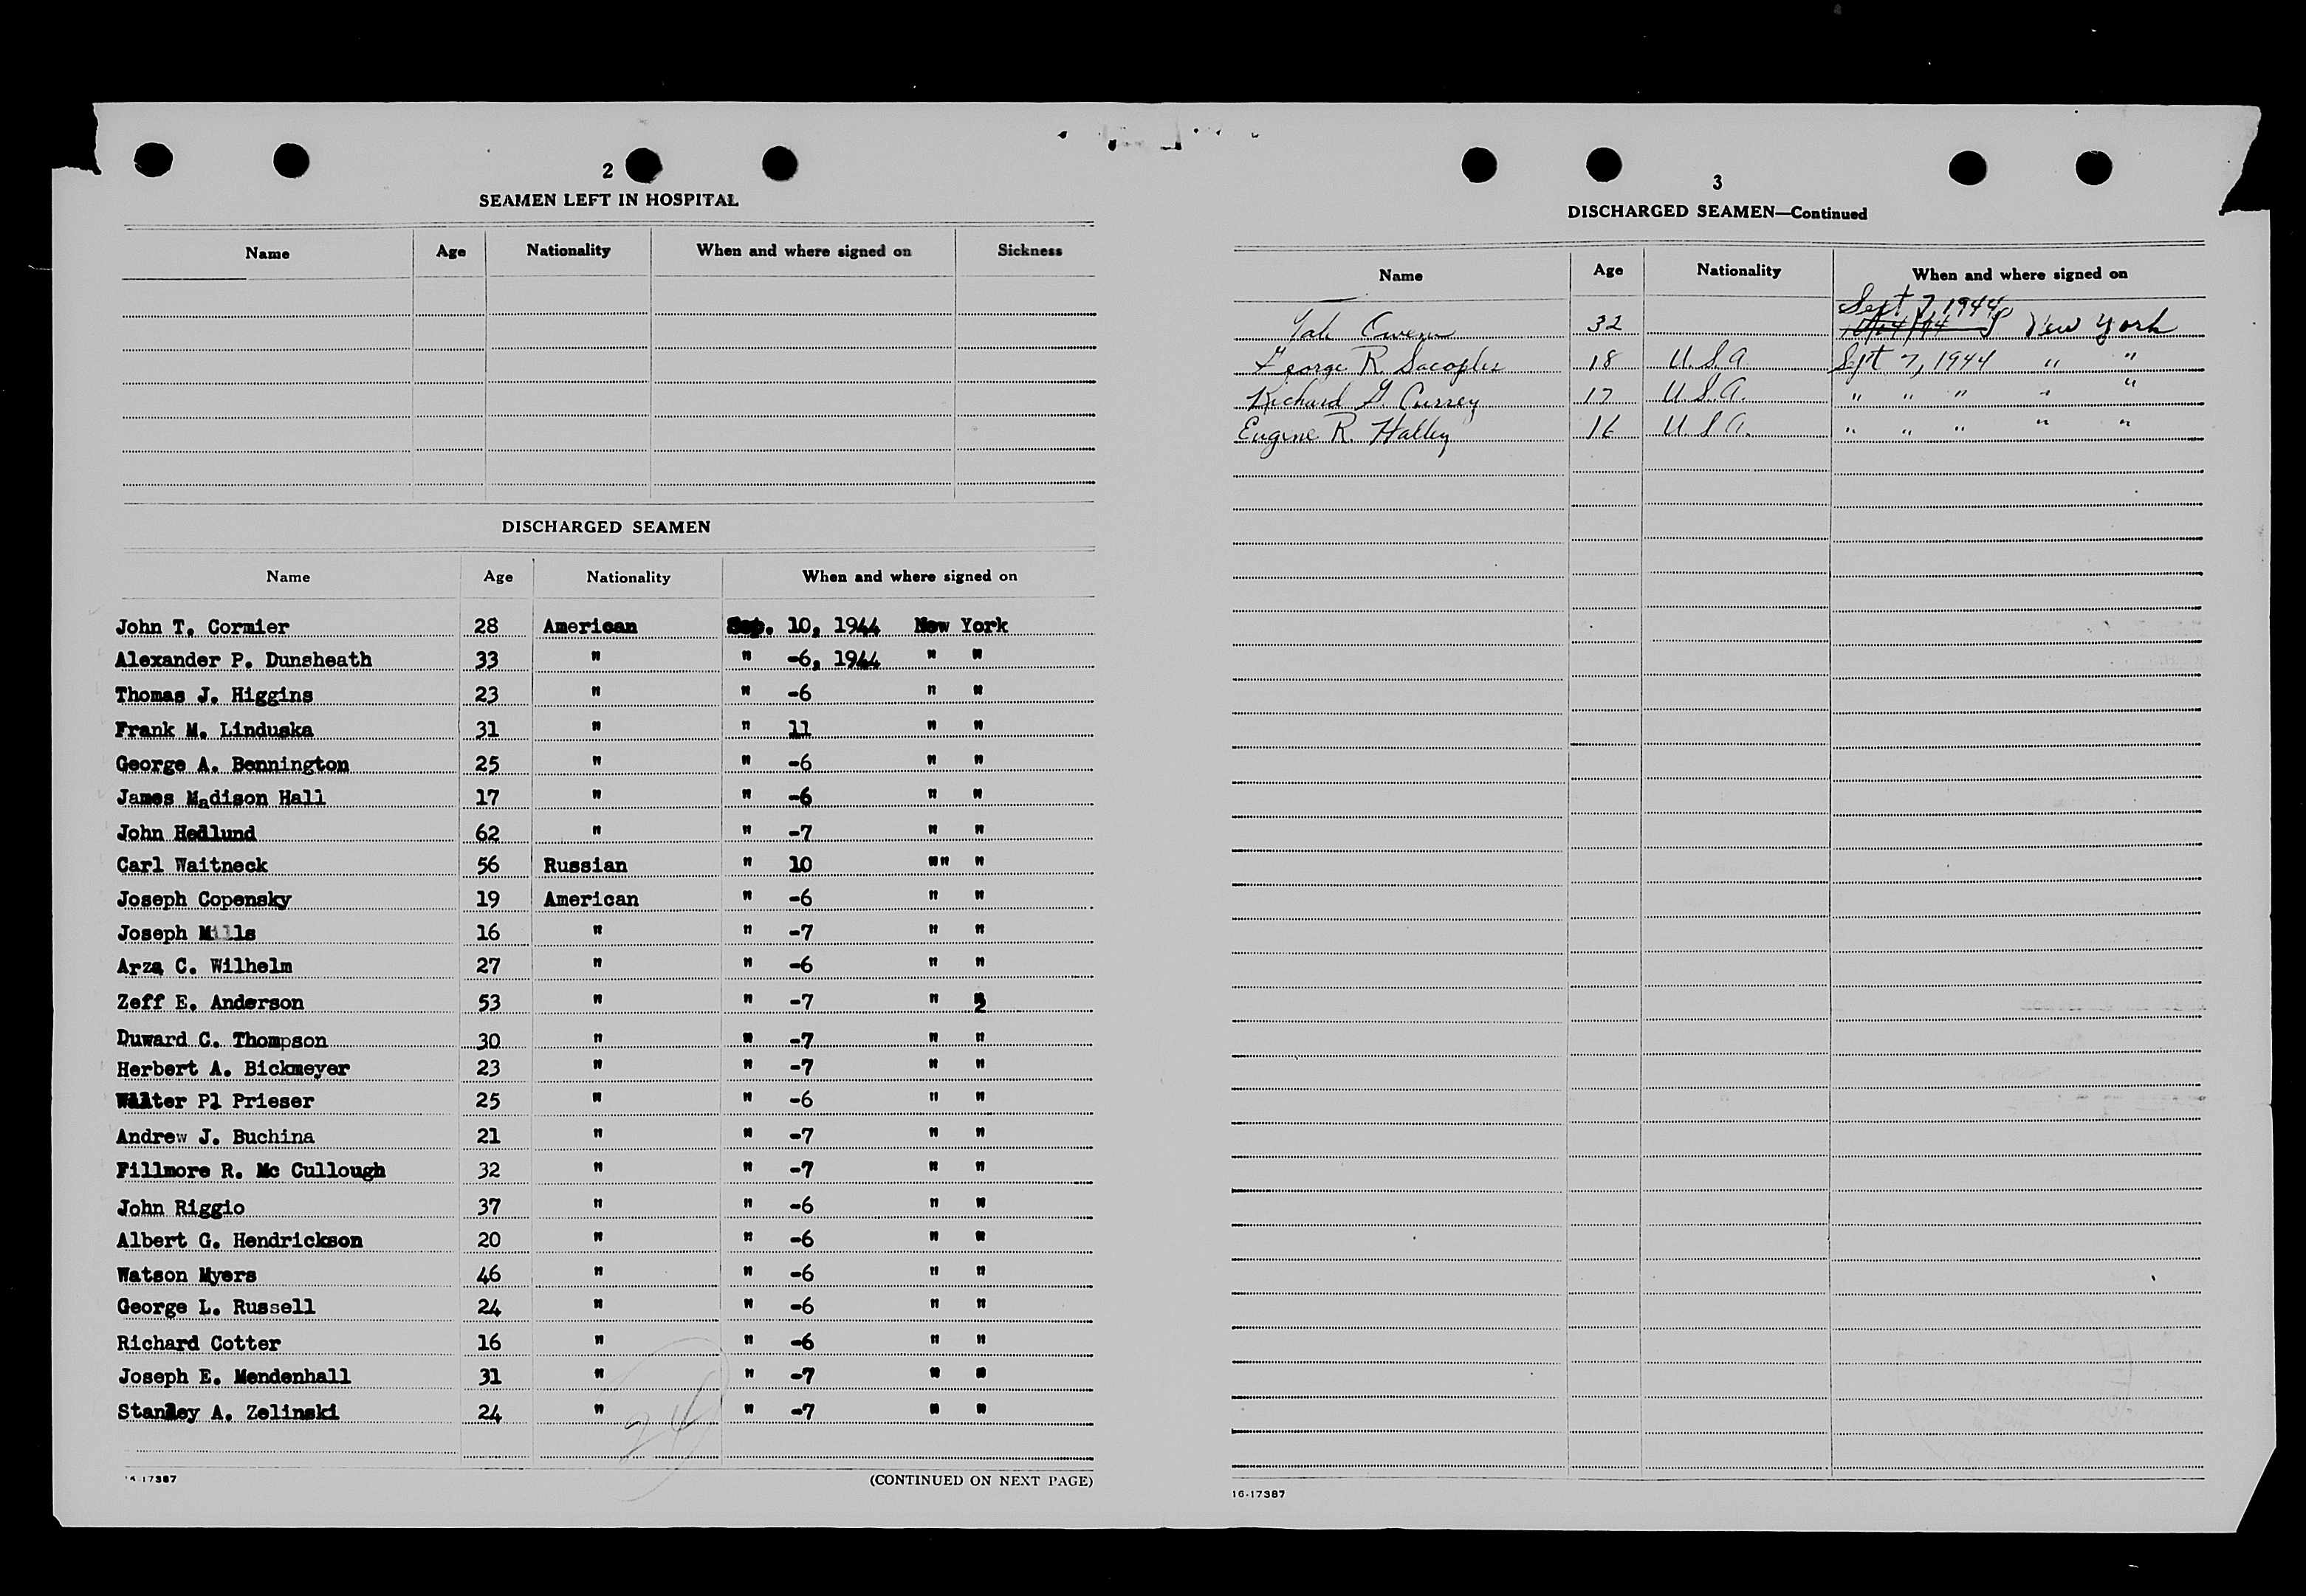 2
SEAMEN LEFT IN HOSPITAL
Name Age Nationality When and where signed on Sickness
DISCHARGED SEAMEN
Name Age Nationality When and where signed on
John T. Cormier 28 American Sep. 10, 1944 New York
Alexander P. Dunsheath 33 " " -6, 1944 " "
Thomas J. Higgins 23 " " -6 " "
Frank M. Linduska 31 " " 11 " "
George A. Bennington 25 " " -6 " "
James Madison Hall 17 " " -6 " "
John Hedlund 62 " " -7 " "
Carl Waitneck 56 Russian " 10 "" "
Joseph Copensky 19 American " -6 " "
Joseph Mills 16 " " -7 " "
Arza C. Wilhelm 27 " " -6 " "
Zeff E. Anderson 53 " " -7 " "
Duward C. Thompson 30 " " -7 " "
Herbert A. Bickmeyer 23 " " -7 " "
Walter Pl Prieser 25 " " -6 " "
Andrew J. Buchina 21 " " -7 " "
Fillmore R. Mc Cullough 32 " " -7 " "
John Riggio 37 " " -6 " "
Albert G. Hendrickson 20 " " -6 " "
Watson Myers 46 " " -6 " "
George L. Russell 24 " " -6 " "
Richard Cotter 16 " " -6 " "
Joseph E. Mendenhall 31 " " -7 " "
Stanley A. Zelinski 24 " " -7 " "
24
16-17387 (CONTINUED ON NEXT PAGE)
3
DISCHARGED SEAMEN—Continued
Name Age Nationality When and where signed on
Sept 7, 1944
Owens 32 New York
George R. 18 U.S.A Sept 7, 1944 " "
Richard G. Currey 17 U.S.A. " " " " "
Eugene R. Halley 16 U.S.A. " " " " "
16-17387